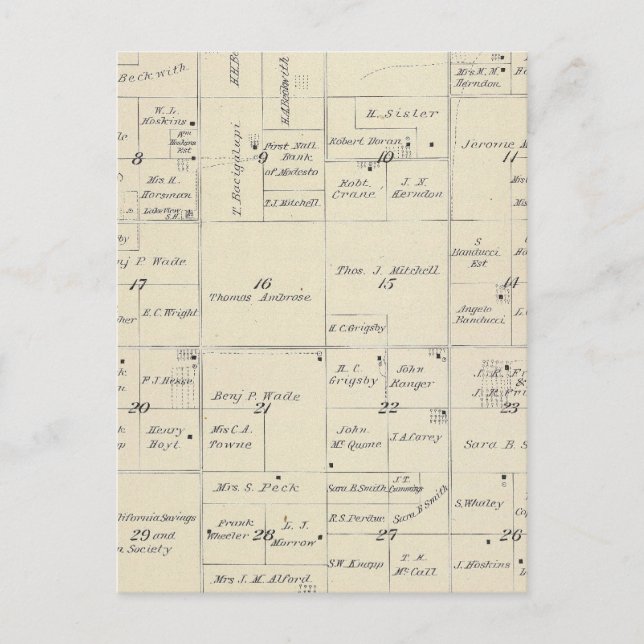 Beckwith
W. L.
Hoskins
Wm
Hoskins
Est
8
Mrs H.
Horsman
Lakeview
S.H.
T. Bacigalupi
H.A. Beckwith
9
First Natl
Bank
of Modesto
T.J. Mitchell
H. Sister
Robert Doran
10
Robt.
Crane
J. N.
Herndon
Mrs M. M.
Herndon
Jerome
11
gsby
nj P. Wade
17
her
E.C. Wright
16
Thomas Ambrose
Thos. J. Mitchell
15
H.C. Grigsby
S
Banducci
Est
14
Angelo
Banducci
F.J. Hesse
20
Henry
Hoyt
Benj P. Wade
21
Mis C.A.
Towne
H. C.
Grigsby
John
Ranger
22
John
Mc Quone
J.A. Corey
J. R.
J. R.
23
Sara B. S
Mrs. S. Peck
Sara B. Smith
J.T.
Cummings
S. Whaley
lifornia Savings
29 and
n Society
Frank
Wheeler
28
L. J.
Morrow
R.S. Perdue
Sara B Smith
27
26
Mrs J. M. Alford
S.W. Knapp
T. H.
Mc Call
J. Hoskins